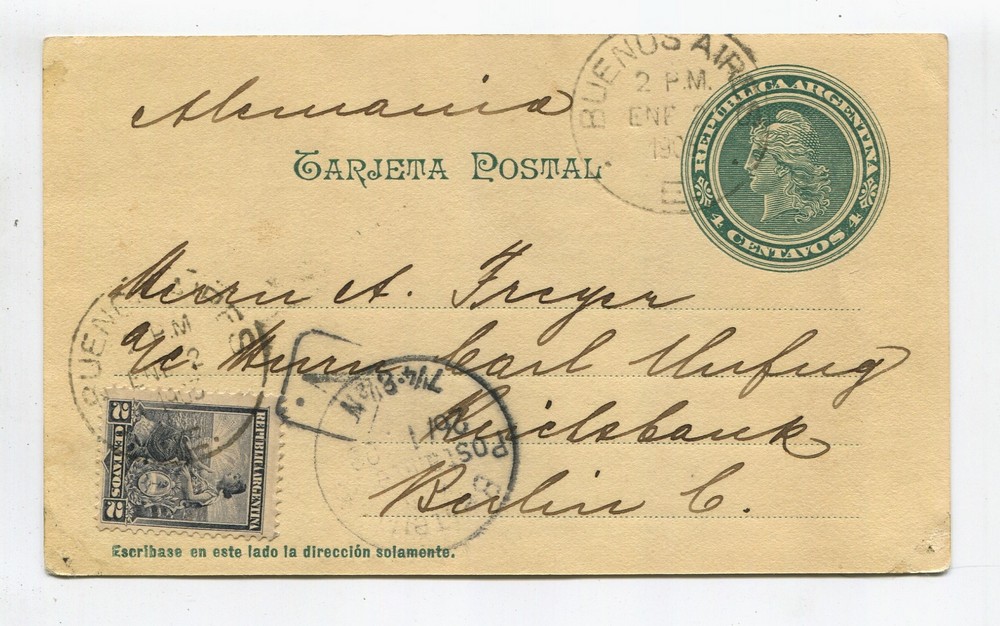 Alemania
BUENOS AIRES
2 P.M.
ENE 2
190
REPUBLICA ARGENTINA
4 CENTAVOS 4
TARJETA POSTAL
Herrn A. Freyer
a/c Herrn Carl Unfug
Reichsbank
Berlin C.
BUENOS
P.M
2
7¼-8½N
26/1
REPUBLICA ARGENTINA
2 CENTAVOS 2
Escríbase en este lado la dirección solamente.